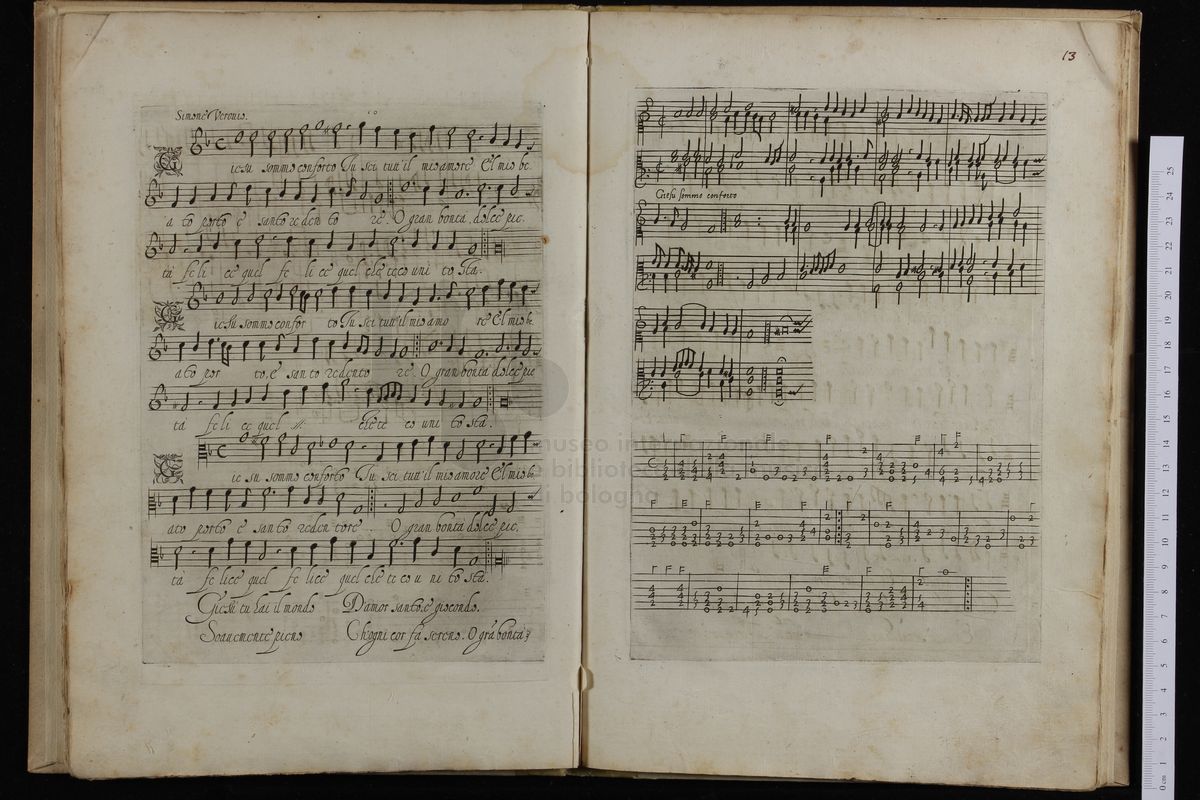 Simone Verouio.
iesu sommo conforto Tu sei tutt'il mio amore El mio be.
a to porto e santo reden to re O gran bonta. dolce pie.
tà fe li ce quel fe li ce quel che teco uni to sta.
iesu sommo confor to Tu sei tutt'il mio amo re El mio be.
ato por to, e san to redento re. O gran bonta dolce pie
ta feli ce quel che te co uni to sta.
ie su sommo conforto Tu sei tutt'il mio amore El mio be.
ato porto e san to reden tore. O gran bonta dolce pie.
tà fe lice quel fe lice quel che te co u ni to sta.
Giesu tu hai il mondo Damor santo, e giocondo.
Soauemente pieno Ch'ogni cor fa sereno. O grã bonta
13
Giesu sommo conforto
museo internazionale
e biblioteca della musica
di bologna